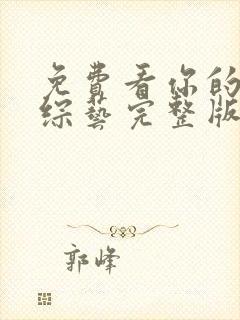 免費看你的
綜藝完整版
郭峰